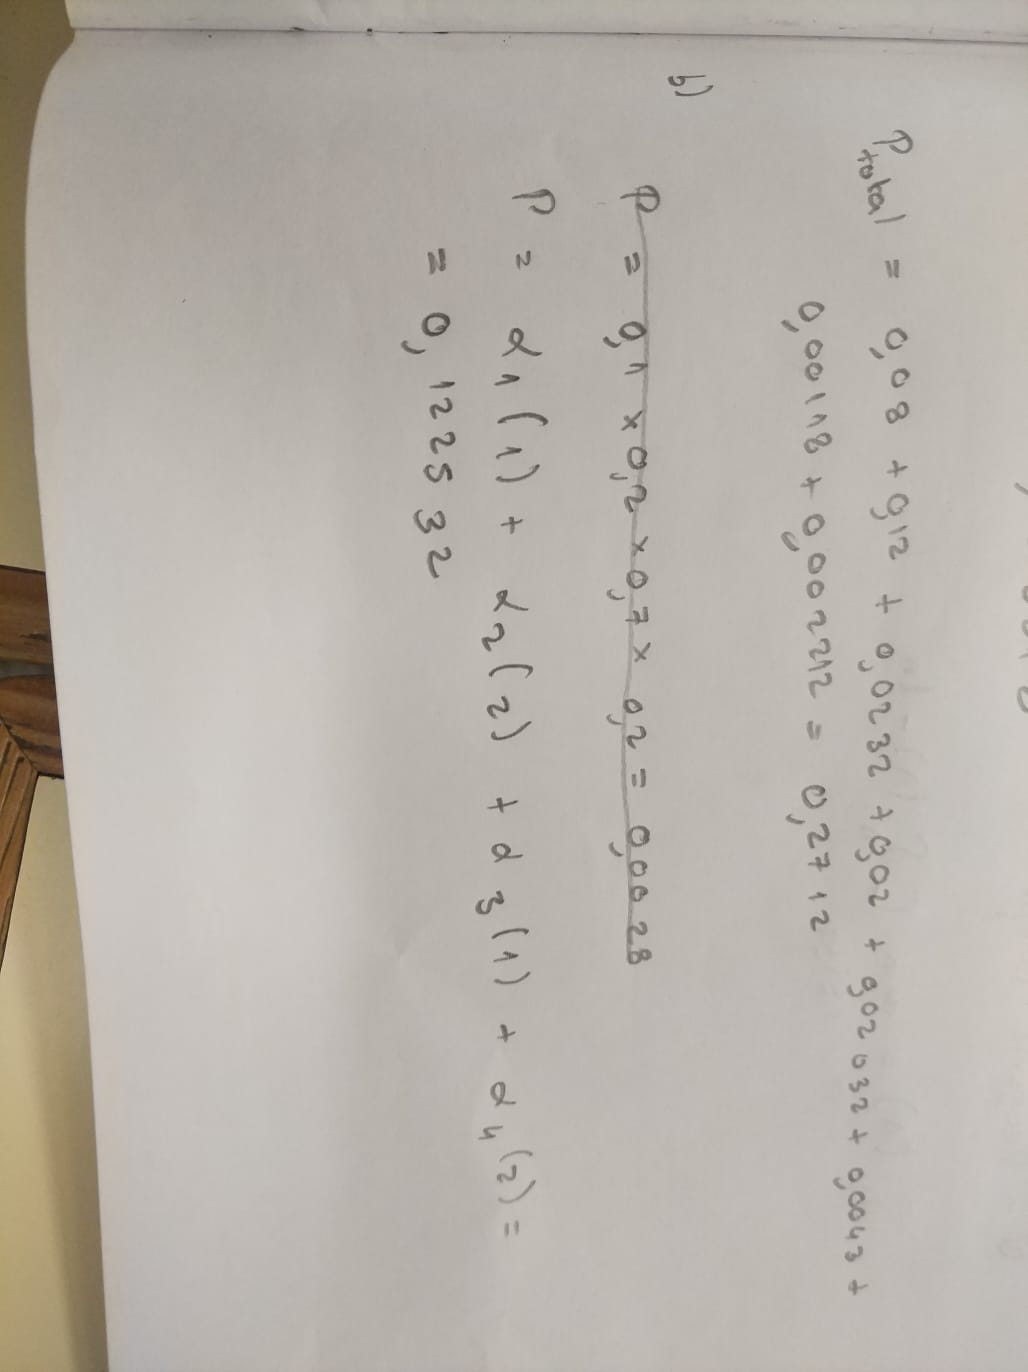 P total = 0,08 + 0,12 + 0,0232 + 0,02 + 0,02032 + 0,0043 +
0,00118 + 0,002212 = 0,2712
b)
P = 0,1 x 0,2 x 0,7 x 0,2 = 0,0028
P = α1(1) + α2(2) + α3(1) + α4(2) =
= 0,122532